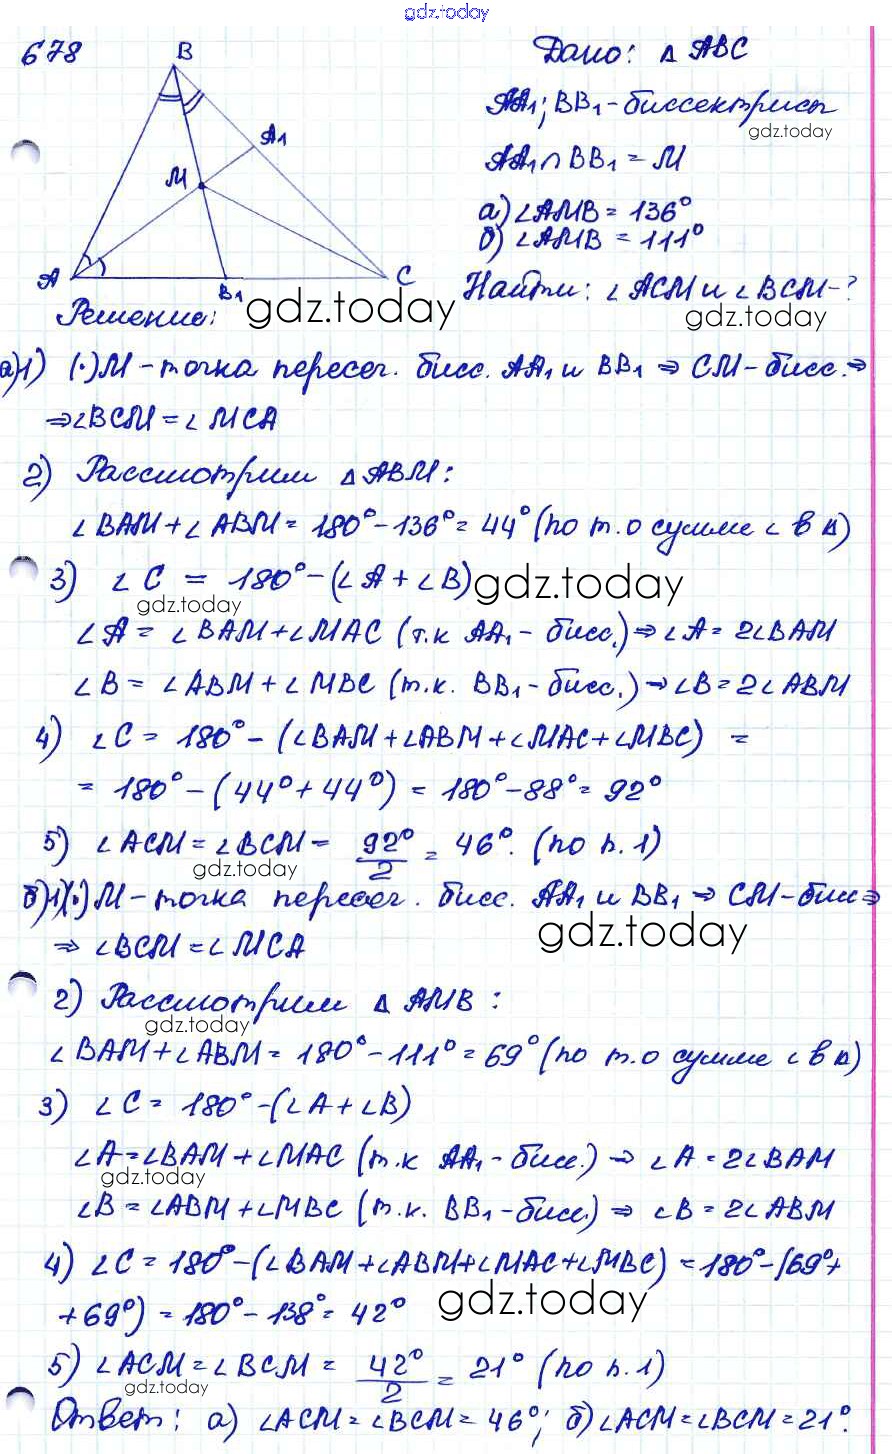 gdz.today
678
B
A₁
M
A
B₁
C
Дано: △ ABC
AA₁; BB₁ - биссектрисы
gdz.today
AA₁ ∩ BB₁ = M
а) ∠AMB = 136°
б) ∠AMB = 111°
Найти: ∠ACM и ∠BCM - ?
gdz.today
Решение: gdz.today
а)1) (·)M - точка пересеч. бисс. AA₁ и BB₁ ⇒ CM - бисс. ⇒
⇒ ∠BCM = ∠MCA
2) Рассмотрим △ABM:
∠BAM + ∠ABM = 180° - 136° = 44° (по т. о сумме ∠ в △)
3) ∠C = 180° - (∠A + ∠B) gdz.today
gdz.today
∠A = ∠BAM + ∠MAC (т.к AA₁ - бисс.) ⇒ ∠A = 2∠BAM
∠B = ∠ABM + ∠MBC (т.к. BB₁ - бисс.) → ∠B = 2∠ABM
4) ∠C = 180° - (∠BAM + ∠ABM + ∠MAC + ∠MBC) =
= 180° - (44° + 44°) = 180° - 88° = 92°
5) ∠ACM = ∠BCM = 92°/2 = 46°. (по п. 1)
gdz.today
б)1)(·)M - точка пересеч. бисс. AA₁ и BB₁ ⇒ CM - бисс ⇒
⇒ ∠BCM = ∠MCA gdz.today
2) Рассмотрим △ AMB:
gdz.today
∠BAM + ∠ABM = 180° - 111° = 69° (по т. о сумме ∠ в △)
3) ∠C = 180° - (∠A + ∠B)
∠A = ∠BAM + ∠MAC (т.к AA₁ - бисс.) → ∠A = 2∠BAM
gdz.today
∠B = ∠ABM + ∠MBC (т.к. BB₁ - бисс.) ⇒ ∠B = 2∠ABM
4) ∠C = 180° - (∠BAM + ∠ABM + ∠MAC + ∠MBC) = 180° - (69° +
+ 69°) = 180° - 138° = 42° gdz.today
5) ∠ACM = ∠BCM = 42°/2 = 21° (по п. 1)
gdz.today
Ответ: а) ∠ACM = ∠BCM = 46°; б) ∠ACM = ∠BCM = 21°.